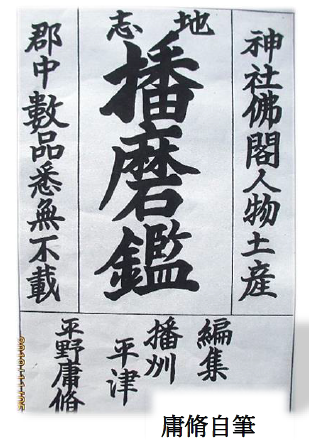 地志
神社佛閣人物土産
播磨鑑
郡中數品悉無不載
編集
播州
平津
平野庸脩
庸脩自筆